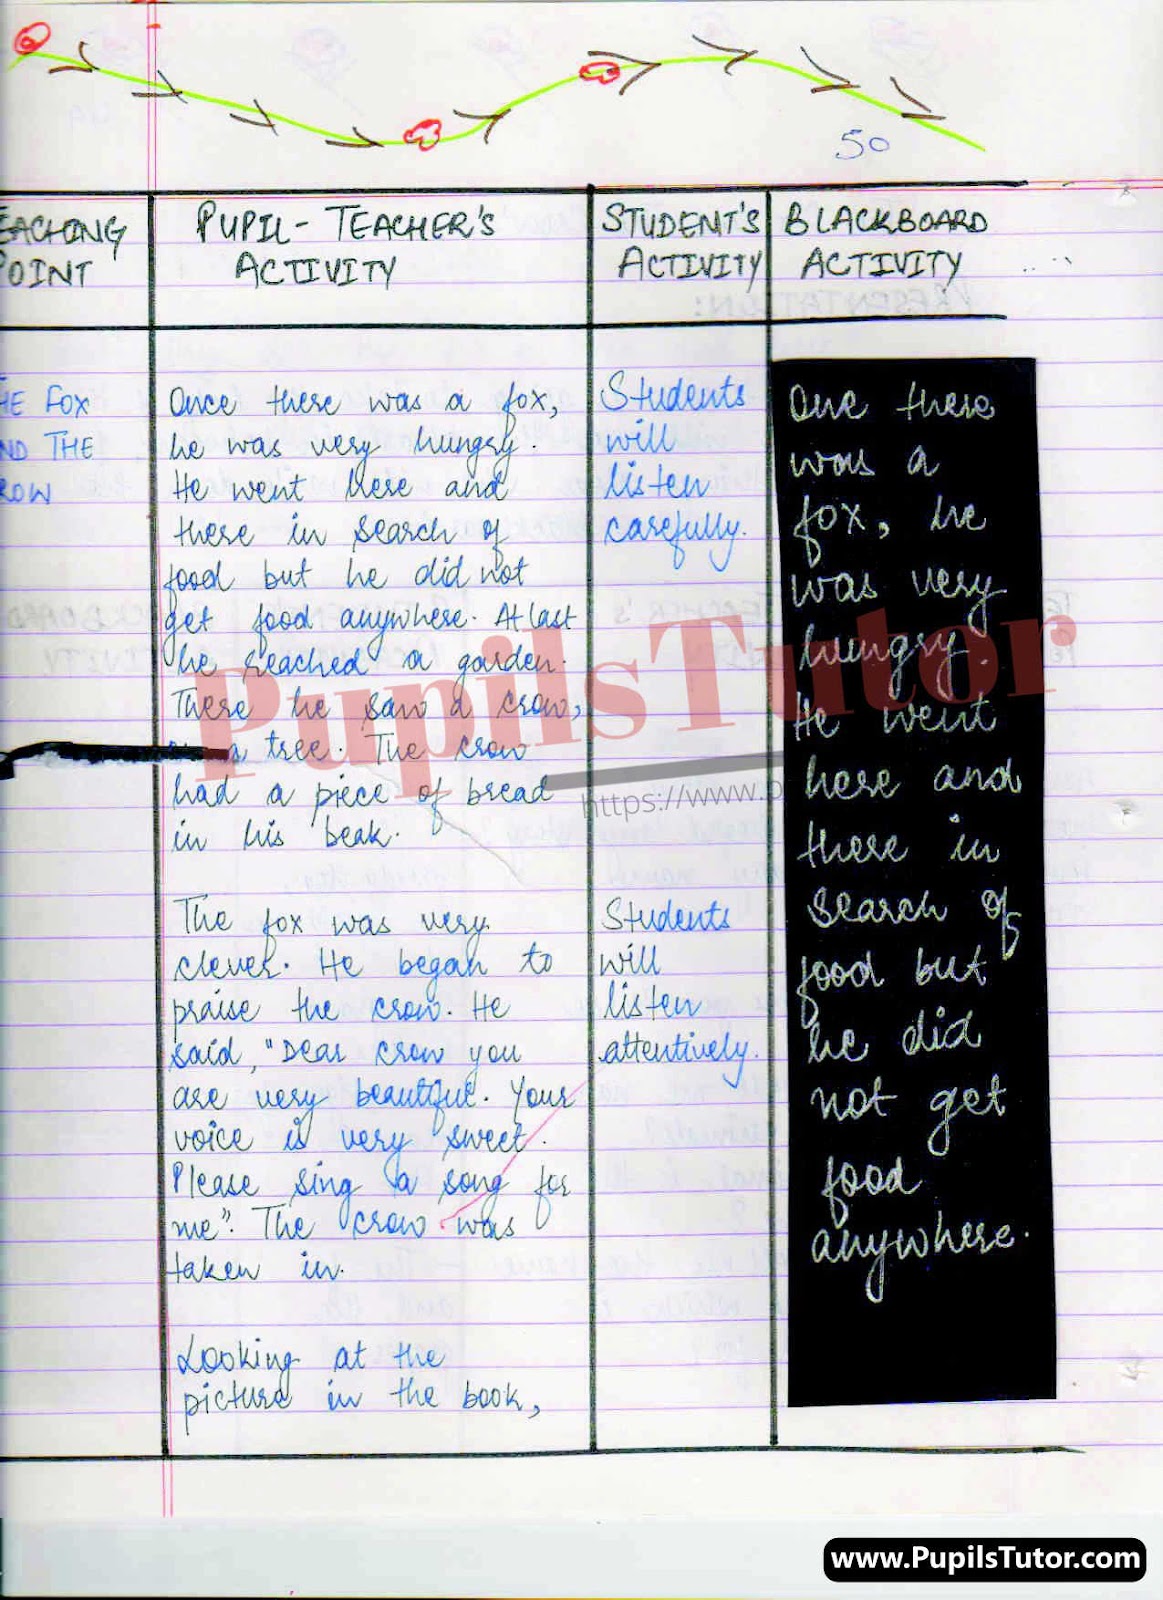 50
TEACHING POINT
PUPIL-TEACHER'S ACTIVITY
STUDENT'S ACTIVITY
BLACKBOARD ACTIVITY
HE FOX
ND THE
ROW
Once there was a fox,
he was very hungry.
He went here and
there in search of
food but he did not
get food anywhere. At last
he reached a garden.
There he saw a crow,
a tree. The crow
had a piece of bread
in his beak.
The fox was very
clever. He began to
praise the crow. He
said, "Dear crow you
are very beautiful. Your
voice is very sweet.
Please sing a song for
me". The crow was
taken in.
Looking at the
picture in the book,
Students
will
listen
carefully.
Students
will
listen
attentively.
One there
was a
fox, he
was very
hungry.
He went
here and
there in
search of
food but
he did
not get
food
anywhere.
PupilsTutor
https://www.p
www.PupilsTutor.com